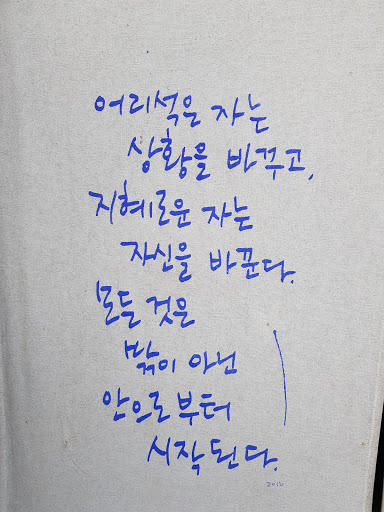 어리석은 자는
상황을 바꾸고,
지혜로운 자는
자신을 바꾼다.
모든 것은
밖이 아닌
안으로부터
시작된다.